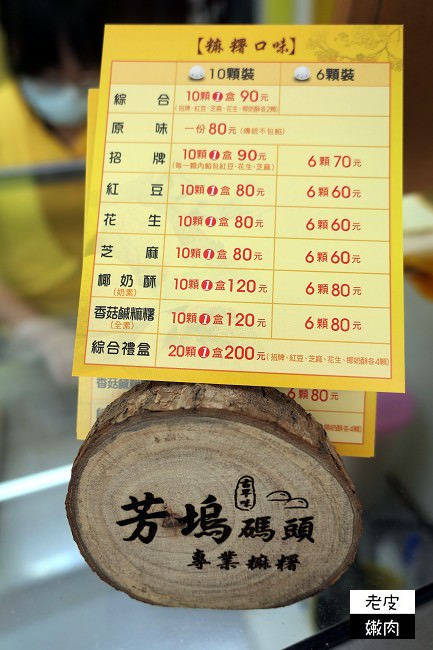 【麻糬口味】
10顆裝 6顆裝
綜合 10顆1盒90元
(招牌、紅豆、芝麻、花生、椰奶酥各2顆)
原味 一份80元(傳統不包餡)
招牌 10顆1盒90元 6顆70元
(每一顆內餡包紅豆、花生、芝麻)
紅豆 10顆1盒80元 6顆60元
花生 10顆1盒80元 6顆60元
芝麻 10顆1盒80元 6顆60元
椰奶酥 10顆1盒120元 6顆80元
(奶素)
香菇鹹麻糬 10顆1盒120元 6顆80元
(全素)
綜合禮盒 20顆1盒200元(招牌、紅豆、芝麻、花生、椰奶酥各4顆)
香菇鹹麻糬 6顆80元
古早味
芳塢碼頭
專業麻糬
老皮
嫩肉